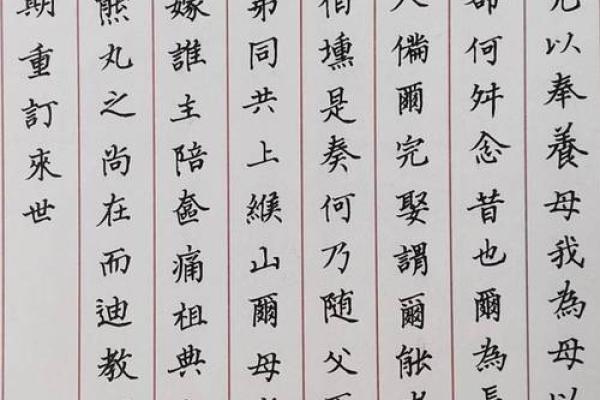 以奉養母我為母以
何舛念昔也爾為長
人備爾完娶謂爾能
伯壎是奏何乃随父
弟同共上緱山爾母
嫁誰主陪奩痛祖典
熊丸之尚在而迪教
期重訂來世